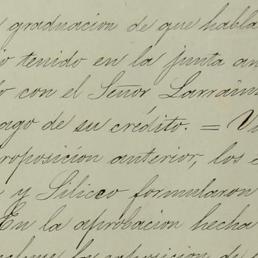 graduacion de que habla
tenido en la junta an
con el Señor Larrain
ago de su crédito. = V
roposición anterior, los
y Siliceo formularon
En la aprobacion hecha